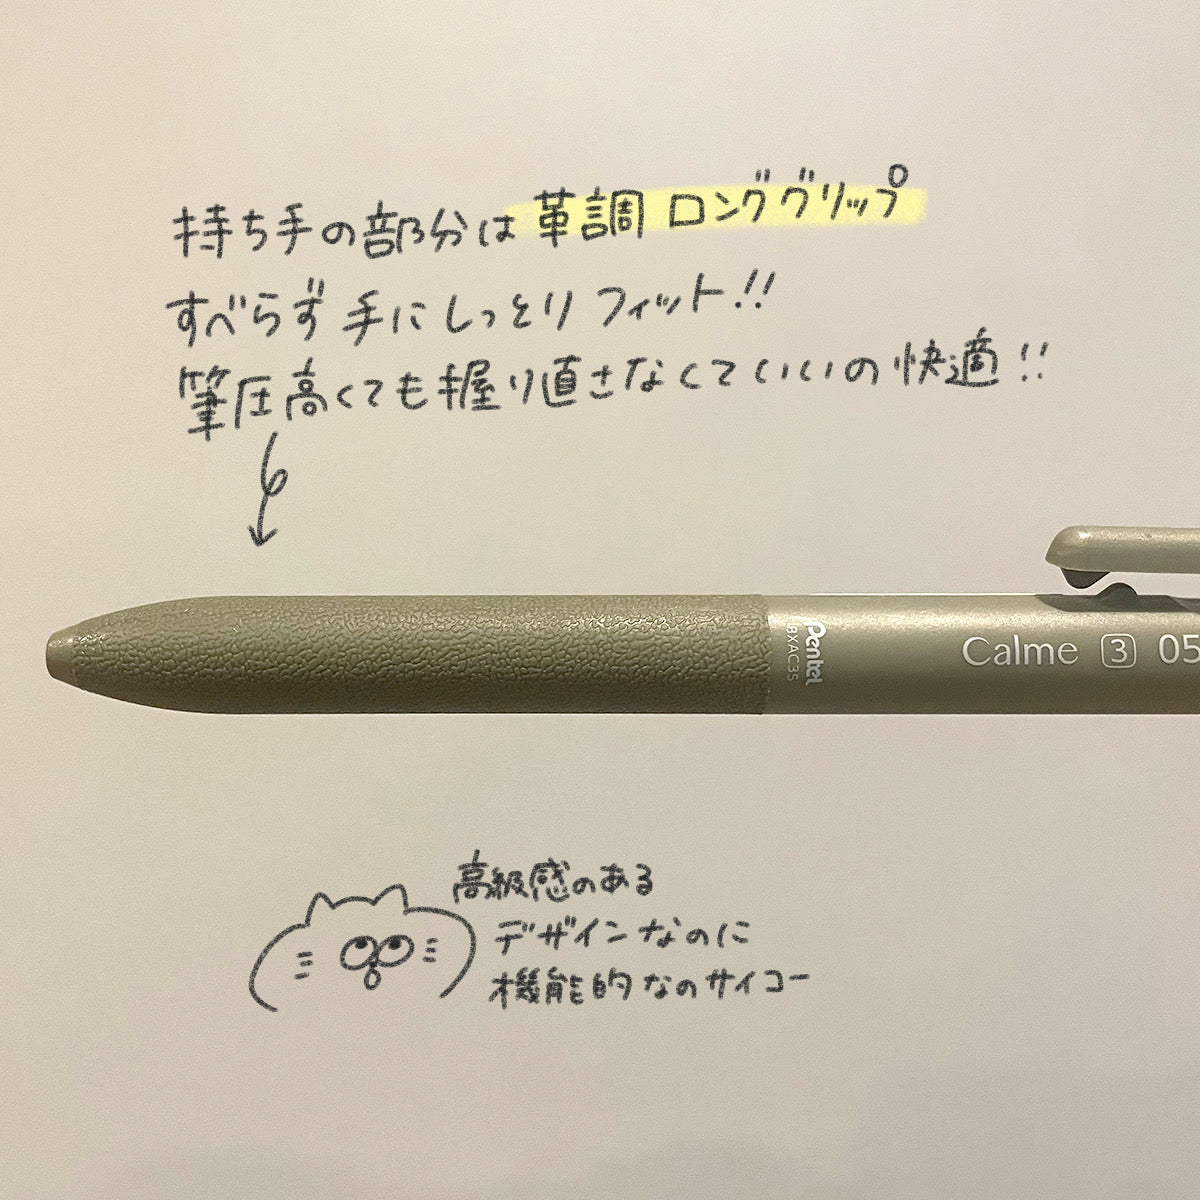 持ち手の部分は革調ロンググリップ
すべらず手にしっとりフィット!!
筆圧高くても握り直さなくていいの快適!!
Pentel
BXAC35
Calme 3 05
高級感のある
デザインなのに
機能的なのサイコー